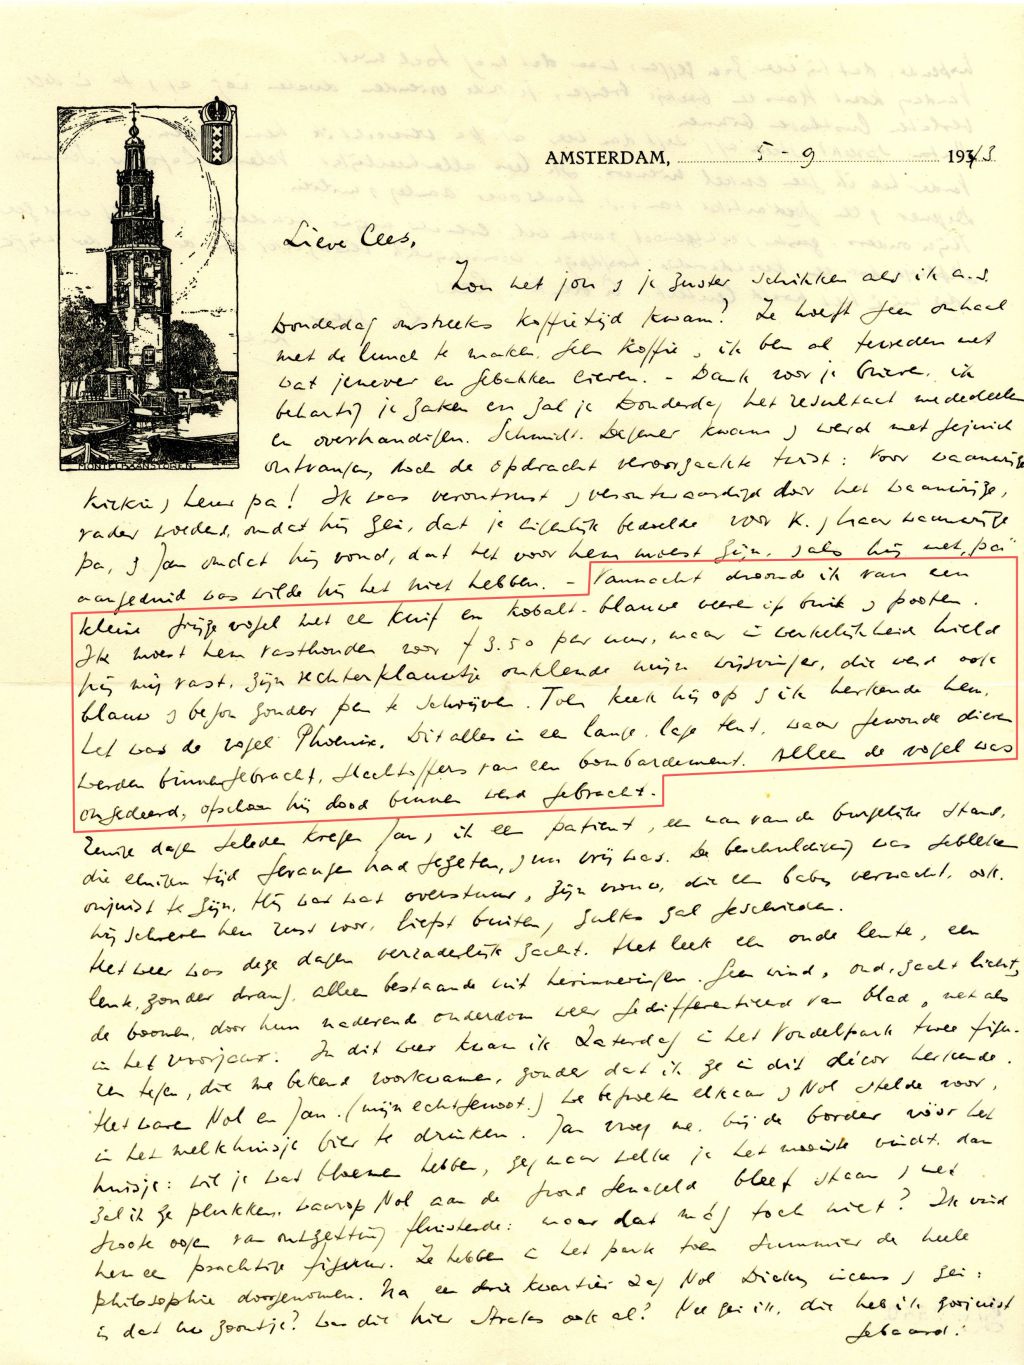 AMSTERDAM, 5 - 9 1943
MONTELBAANSTOREN
Lieve Cees,
Zou het jou & je zuster schikken als ik a.s.
Donderdag omstreeks koffietijd kwam? Ze hoeft geen omhaal
met de lunch te maken. Geen koffie, ik ben al tevreden met
wat jenever en gebakken lieren. - Dank voor je brieven. ik
behartig je zaken en zal je Donderdag het resultaat mededeelen
en overhandigen. Schmidt-Degener kwam & werd met gejuich
ontvangen, doch de opdracht veroorzaakte twist: Voor
& haar pa! Ik was verontrust & verontwaardigd door het
vader woedend, omdat hij zei, dat je eigenlijk bedoelde voor K. & haar
pa, & Jan omdat hij vond, dat het voor hem moest zijn, & als hij met "pa"
aangeduid was wilde hij het niet hebben. - Vannacht droomde ik van een
kleine grijze vogel met een kuif en kobalt-blauwe veeren op buik & pooten.
Ik moest hem vasthouden voor f 3.50 per uur, maar in werkelijkheid hield
hij mij vast. Zijn rechterklauwtje omklemde mijn wijsvinger, die werd ook
blauw & begon zonder pen te schrijven. Toen keek hij op & ik herkende hem.
Het was de vogel Phoenix. Dit alles in een lange, lage tent, waar gewonde dieren
werden binnengebracht, slachtoffers van een bombardement. Alleen de vogel was
ongedeerd, ofschoon hij dood binnen werd gebracht.
Eenige dagen geleden kregen Jan & ik een patient, een man van de burgelijke stand,
die eenigen tijd gevangen had gezeten, & nu vrij was. De beschuldiging was gebleken
onjuist te zijn. Hij was wat overstuur, zijn vrouw, die een baby verwacht, ook.
Wij schreven hen rust voor, liefst buiten, zulks zal geschieden.
Het weer was deze dagen verraderlijk zacht. Het leek een oude lente, een
lente, zonder drang, alleen bestaande uit herinneringen. Geen wind, oud, zacht licht,
de boomen, door hun naderend onderdom weer gedifferentieerd van blad, net als
in het voorjaar. In dit weer kwam ik Zaterdag in het Vondelpark twee figu-
ren tegen, die me bekend voorkwamen, zonder dat ik ze in dit décor herkende.
Het waren Nol en Jan. (mijn echtgenoot.) We begroetten elkaar & Nol stelde voor,
in het melkhuisje bier te drinken. Jan vroeg me bij de border vóór het
huisje: wil je wat bloemen hebben, zeg maar welke je het mooiste vindt, dan
zal ik ze plukken, waarop Nol aan de grond genageld bleef staan & met
groote oogen van ontzetting fluisterde: maar dat mág toch niet? Ik vind
hem een prachtige figuur. Ze hebben in het park toen summier de heele
philosophie doorgenomen. Na een drie kwartier zag Nol Dicky ineens & zei:
is dat uw zoontje? Was die hier straks ook al? Nee zei ik, die heb ik zoojuist
gebaard!